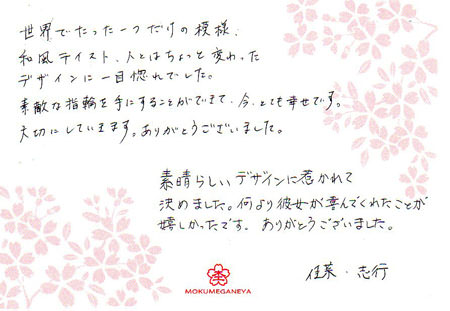 世界でたった一つだけの模様、
和風テイスト、人とはちょっと変わった
デザインに一目惚れでした。
素敵な指輪を手にすることができて、今、とても幸せです。
大切にしていきます。ありがとうございました。
素晴らしいデザインに惹かれて
決めました。何より彼女が喜んでくれたことが
嬉しかったです。ありがとうございました。
佳菜・志行
MOKUMEGANEYA